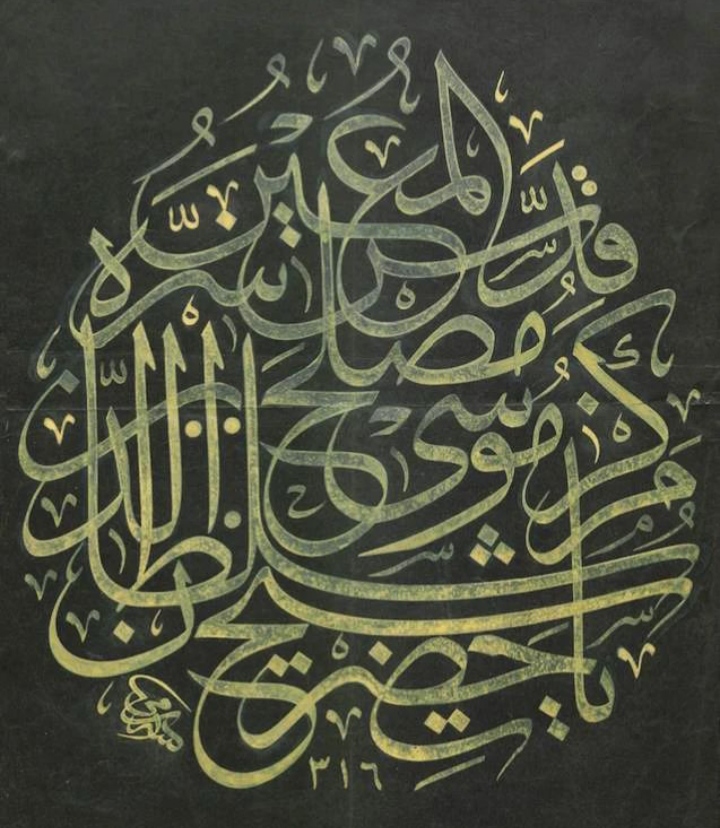 يا حضرت شيخ سلطان
مركز موسى مصلح الدين
قدس سره المعين
٣١٦